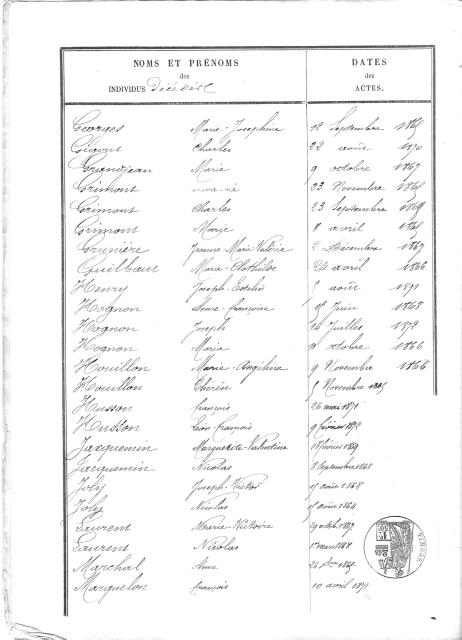 NOMS ET PRÉNOMS
des
INDIVIDUS Décédés
DATES
des
ACTES.
Georges Marie-Josephine 12 Septembre
Charles 22 août 1870
Grandjean Marie 9 octobre 1867
Grimont 23 Novembre
Grimont Charles 23 Septembre
Grimont Marie 8 avril
Grunière Jeanne-Marie-Valérie 2 Décembre 1867
Guilbaut Marie-Clothilde 24 avril 1866
Henry Joseph août 1871
Hognon Anne-françoise Juin 1868
Hognon Joseph 14 Juillet 1872
Hognon Maria octobre 1866
Houillon Marie 9 Novembre 1866
Houillon Thérèse Novembre
Husson françois 26 mai 1871
Husson Léon françois 9 février 1872
Jacquemin Marguerite-Valentine 18 février 1869
Jacquemin Nicolas 8 Septembre 1868
Joly Joseph-Victor août 1868
Joly Nicolas août 1864
Laurent Marie-Victoire 29 octobre
Laurent Nicolas mars 1868
Marchal Anne 26
Marguelon françois 10 avril 1871